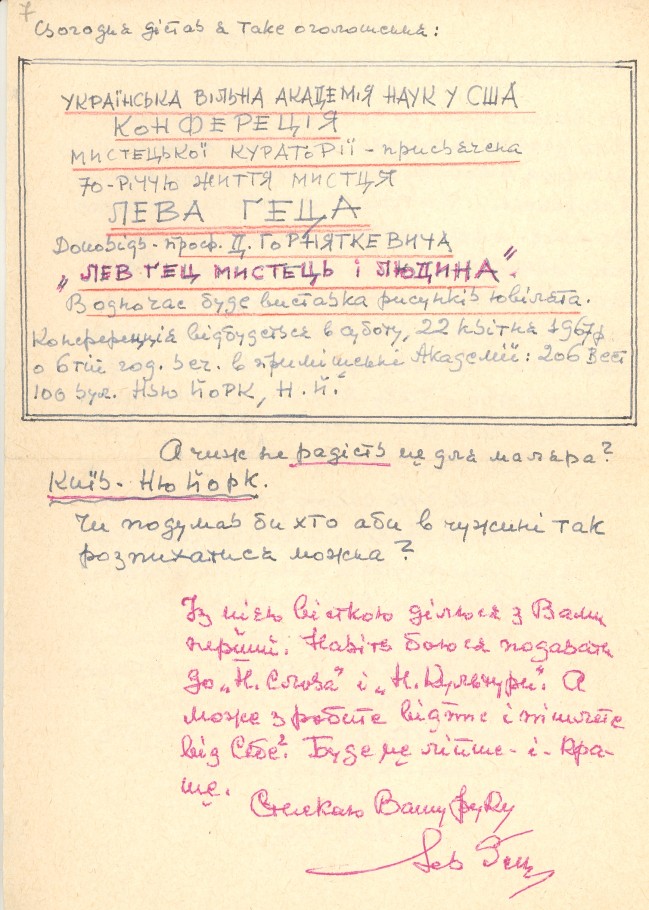 7
Сьогодня дістав я таке оголошення:
УКРАЇНСЬКА ВІЛЬНА АКАДЕМІЯ НАУК У США
КОНФЕРЕЦІЯ
МИСТЕЦЬКОЇ КУРАТОРІЇ - присвячена
70-РІЧЧЮ ЖИТТЯ МИСТЦЯ
ЛЕВА ҐЕЦА
Доповідь - проф. Д. ГОРНЯТКЕВИЧА
„ЛЕВ ҐЕЦ МИСТЕЦЬ І ЛЮДИНА".
Водночас буде виставка рисунків ювілята.
Конференція відбудеться в суботу, 22 квітня 1967 р
о 6тій год. веч. в приміщенні Академії: 206 Вест
100 вул. НЗЮ ЙОРК, Н. Й."
А чиж не радість це для маляра?
КИЇВ - НЮ ЙОРК.
Чи подумав би хто аби в чужині так
розпихатися можна?
Із цією вісткою ділюся з Вами
перший. Навіть боюся подавати
до „Н. Слова" і „Н. Культури". А
може зробите відпис і пішлете
від Себе? Буде це ліпше - і - кра-
ще.
Стискаю Вашу руку
Лев Ґец